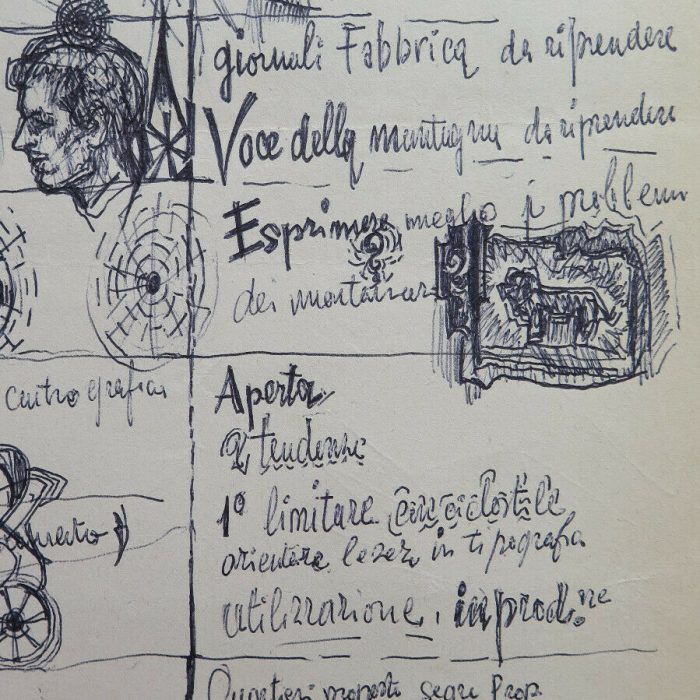 giornali Fabbrica da riprendere
Voce della montagna da riprendere
Esprimere meglio i problemi
dei montanari
centro grafica
Aperta
2 tendenze
1° limitare ciclostile
orientare in tipografia
utilizzazione. in prod.ne
Quartieri proposti